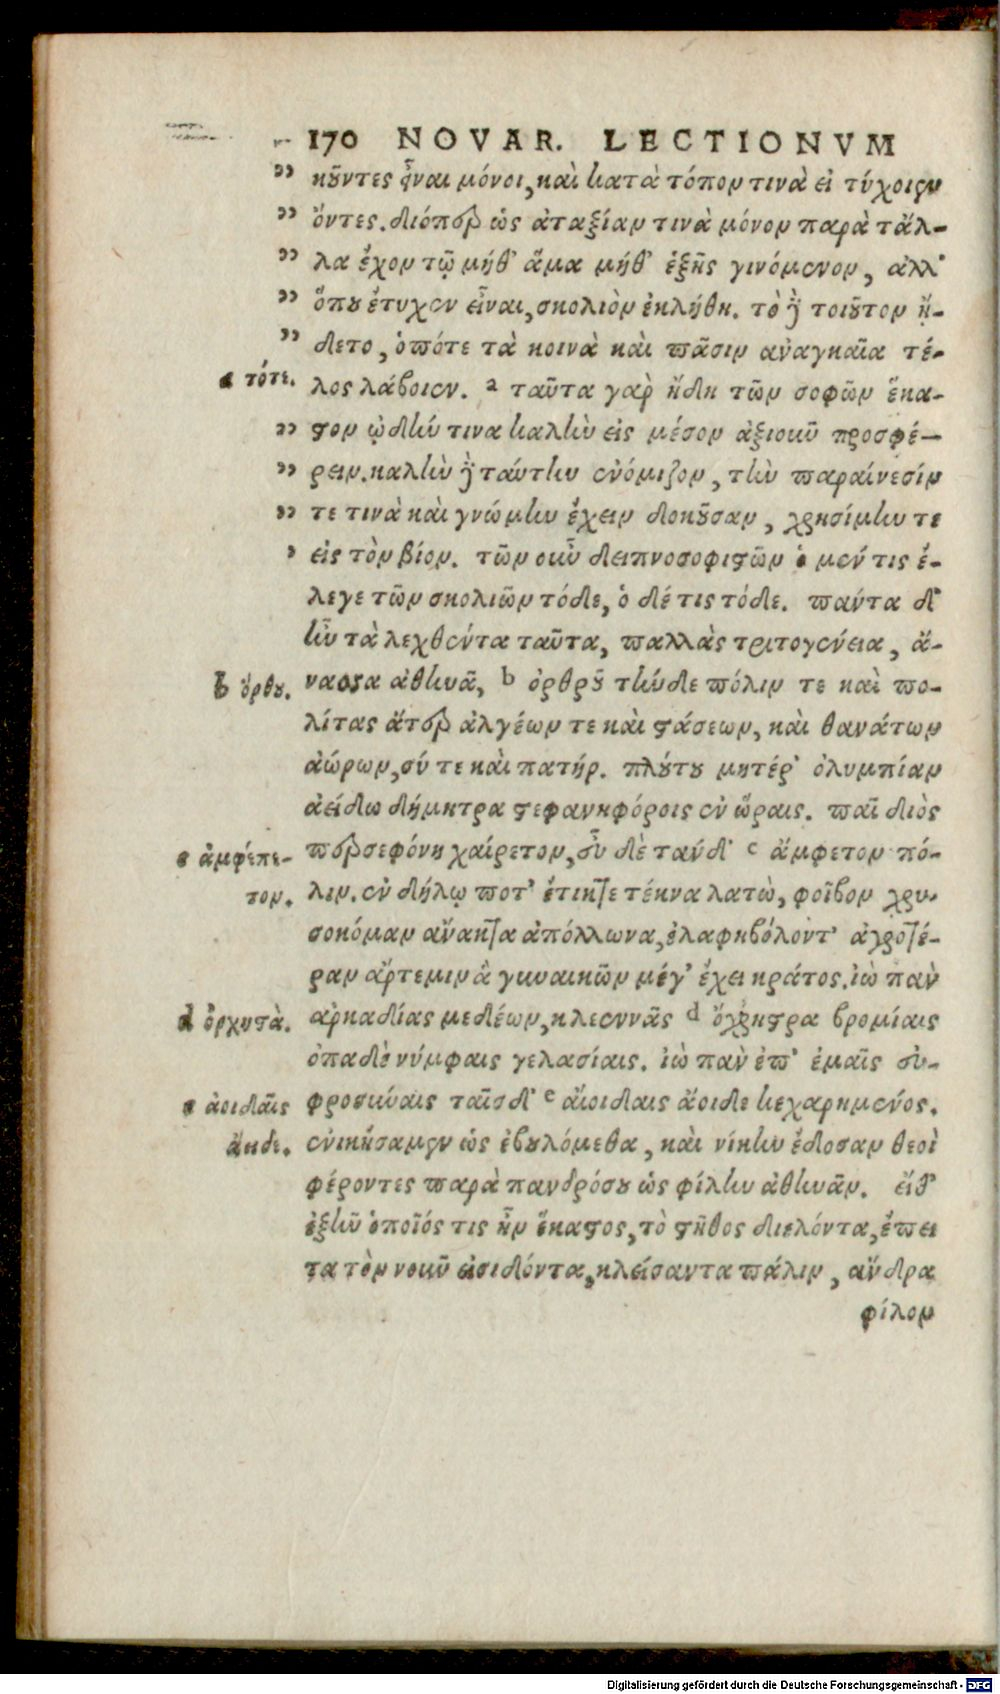 170 NOVAR. LECTIONVM
" κοῦντες εἶναι μόνοι, καὶ κατὰ τόπον τινὰ εἰ τύχοιεν
" ὄντες. διόπερ ὡς ἀταξίαν τινὰ μόνον παρὰ τἄλ-
" λα ἔχον τῷ μήθ' ἅμα μήθ' ἑξῆς γινόμενον, ἀλλ'
" ὅπου ἔτυχεν εἶναι, σκολιὸν ἐκλήθη. τὸ δὲ τοιοῦτον ᾔ-
" δετο, ὁπότε τὰ κοινὰ καὶ πᾶσιν ἀναγκαῖα τέ-
a τότε. λος λάβοιεν. a ταῦτα γὰρ ἤδη τῶν σοφῶν ἕκα-
" στον ᾠδήν τινα καλὴν εἰς μέσον ἀξιοῦν προσφέ-
" ρειν. καλὴν δὲ ταύτην ἐνόμιζον, τὴν παραίνεσίν
" τε τινὰ καὶ γνώμην ἔχειν δοκοῦσαν, χρησίμην τε
' εἰς τὸν βίον. τῶν οὖν δειπνοσοφιστῶν ὁ μέν τις ἔ-
λεγε τῶν σκολιῶν τόδε, ὁ δέ τις τόδε. πάντα δ'
ἦν τὰ λεχθέντα ταῦτα, παλλὰς τριτογένεια, ἄ-
b ὄρθου. νασσα ἀθηνᾶ, b ὀρθροῦ τήνδε πόλιν τε καὶ πο-
λίτας ἄτερ ἀλγέων τε καὶ στάσεων, καὶ θανάτων
ἀώρων, σύ τε καὶ πατήρ. πλούτου μητέρ' ὀλυμπίαν
ἀείδω δήμητρα στεφανηφόροις ἐν ὥραις. παῖ διὸς
c ἀμφέπε- περσεφόνη χαίρετον, εὖ δὲ τάνδ' c ἄμφετον πό-
τον. λιν. ἐν δήλῳ ποτ' ἔτικτε τέκνα λατὼ, φοῖβον χρυ-
σοκόμαν ἄνακτα ἀπόλλωνα, ἐλαφηβόλοντ' ἀγροτέ-
ραν ἄρτεμιν ἃ γυναικῶν μέγ' ἔχει κράτος. ἰὼ πὰν
d ὀρχηστὰ. ἀρκαδίας μεδέων, κλεεννᾶς d ὄρχηστρα βρομίαις
ὀπαδὲ νύμφαις γελασίαις. ἰὼ πὰν ἐπ' ἐμαῖς εὐ-
e ἀοιδαῖς φροσύναις ταῖσδ' e αἴοιδαις ἄοιδε κεχαρημένος.
ἄειδε. ἐνικήσαμεν ὡς ἐβουλόμεθα, καὶ νίκην ἔδοσαν θεοὶ
φέροντες παρὰ πανδρόσου ὡς φίλην ἀθηνᾶν. εἴθ'
ἐξῆν ὁποῖός τις ἦν ἕκαστος, τὸ στῆθος διελόντα, ἔπει
τα τὸν νοῦν εἰσιδόντα, κλείσαντα πάλιν, ἄνδρα
φίλον
Digitalisierung gefördert durch die Deutsche Forschungsgemeinschaft - DFG